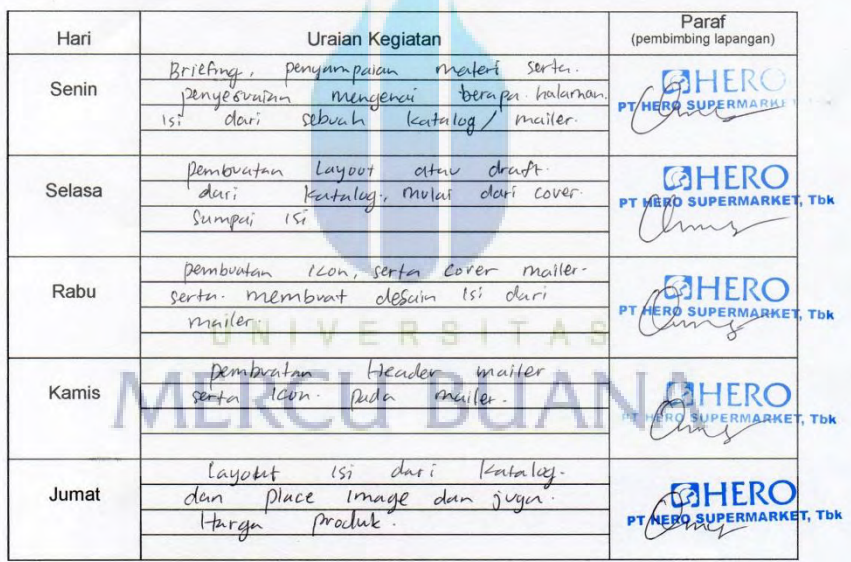 Hari Uraian Kegiatan Paraf
(pembimbing lapangan)
Senin
Briefing, penyampaian materi serta.
penyesuaian mengenai berapa halaman.
isi dari sebuah katalog / mailer.
HERO
PT HERO SUPERMARKE
Selasa
pembuatan Layout atau draft.
dari Katalog, mulai dari cover.
Sampai isi
HERO
PT HERO SUPERMARKET, Tbk
Rabu
pembuatan Icon, serta Cover mailer.
serta. membuat desain isi dari
mailer.
HERO
PT HERO SUPERMARKET, Tbk
UNIVERSITAS
MERCU BUANA
Kamis
pembuatan Header mailer
serta Icon. pada mailer.
HERO
PT HERO SUPERMARKET, Tbk
Jumat
Layout isi dari Katalog.
dan place Image dan juga.
Harga produk.
HERO
PT HERO SUPERMARKET, Tbk